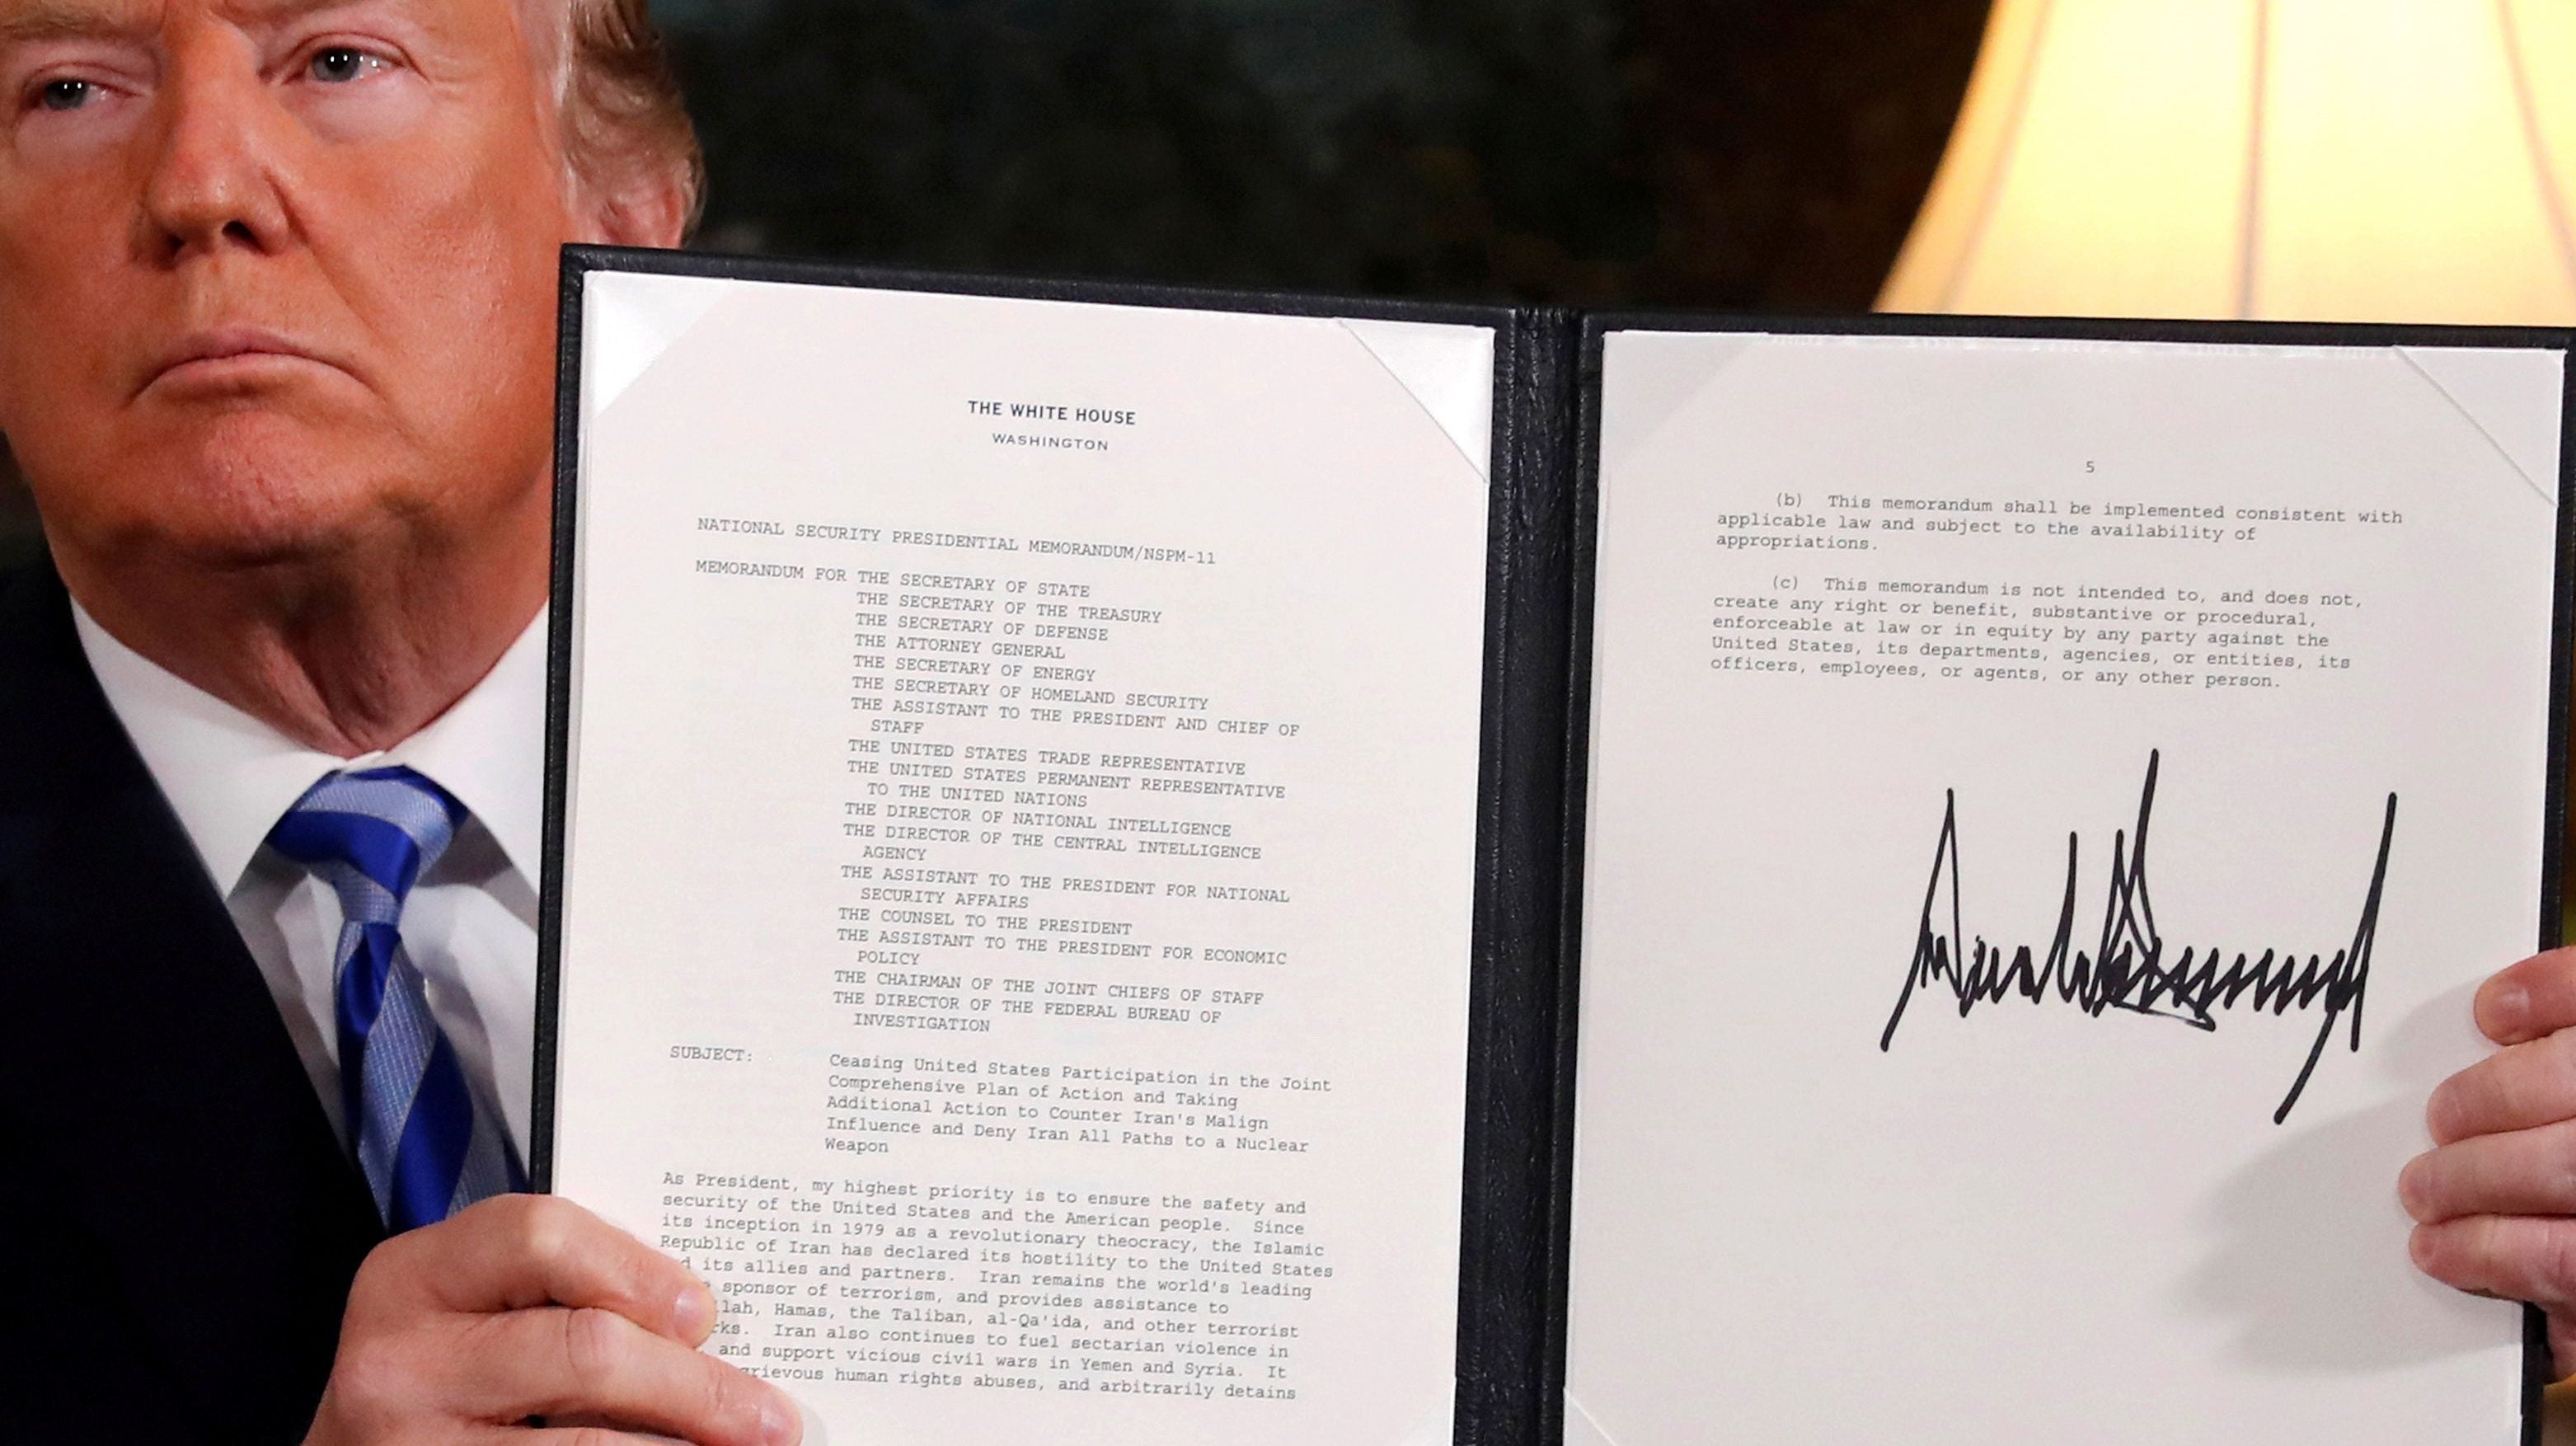 THE WHITE HOUSE
WASHINGTON
NATIONAL SECURITY PRESIDENTIAL MEMORANDUM/NSPM-11
MEMORANDUM FOR THE SECRETARY OF STATE
THE SECRETARY OF THE TREASURY
THE SECRETARY OF DEFENSE
THE ATTORNEY GENERAL
THE SECRETARY OF ENERGY
THE SECRETARY OF HOMELAND SECURITY
THE ASSISTANT TO THE PRESIDENT AND CHIEF OF
STAFF
THE UNITED STATES TRADE REPRESENTATIVE
THE UNITED STATES PERMANENT REPRESENTATIVE
TO THE UNITED NATIONS
THE DIRECTOR OF NATIONAL INTELLIGENCE
THE DIRECTOR OF THE CENTRAL INTELLIGENCE
AGENCY
THE ASSISTANT TO THE PRESIDENT FOR NATIONAL
SECURITY AFFAIRS
THE COUNSEL TO THE PRESIDENT
THE ASSISTANT TO THE PRESIDENT FOR ECONOMIC
POLICY
THE CHAIRMAN OF THE JOINT CHIEFS OF STAFF
THE DIRECTOR OF THE FEDERAL BUREAU OF
INVESTIGATION
SUBJECT: Ceasing United States Participation in the Joint
Comprehensive Plan of Action and Taking
Additional Action to Counter Iran's Malign
Influence and Deny Iran All Paths to a Nuclear
Weapon
As President, my highest priority is to ensure the safety and
security of the United States and the American people. Since
its inception in 1979 as a revolutionary theocracy, the Islamic
Republic of Iran has declared its hostility to the United States
its allies and partners. Iran remains the world's leading
sponsor of terrorism, and provides assistance to
Hamas, the Taliban, al-Qa'ida, and other terrorist
Iran also continues to fuel sectarian violence in
and support vicious civil wars in Yemen and Syria. It
grievous human rights abuses, and arbitrarily detains
5
(b) This memorandum shall be implemented consistent with
applicable law and subject to the availability of
appropriations.
(c) This memorandum is not intended to, and does not,
create any right or benefit, substantive or procedural,
enforceable at law or in equity by any party against the
United States, its departments, agencies, or entities, its
officers, employees, or agents, or any other person.